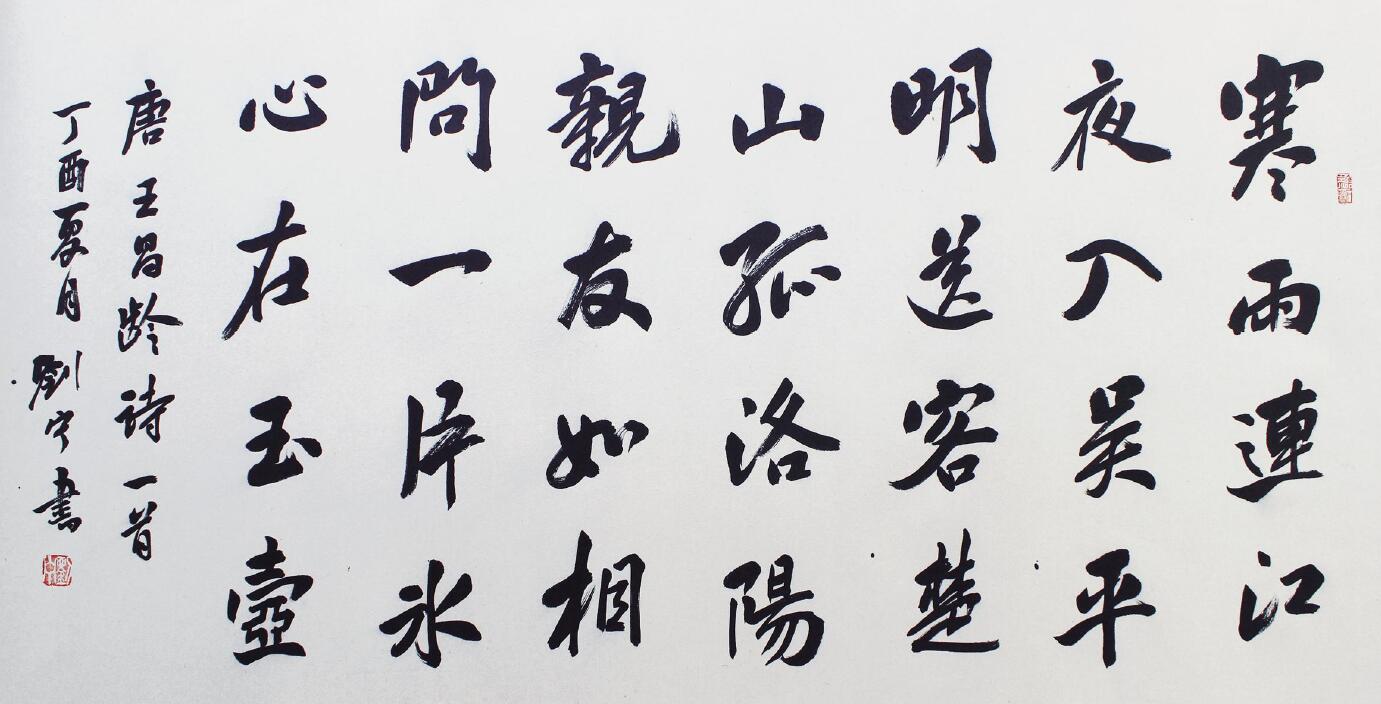 寒雨連江
夜入吴平
明送客楚
山孤洛陽
親友如相
問一片冰
心在玉壺
唐王昌龄诗一首
丁酉夏月劉宁書